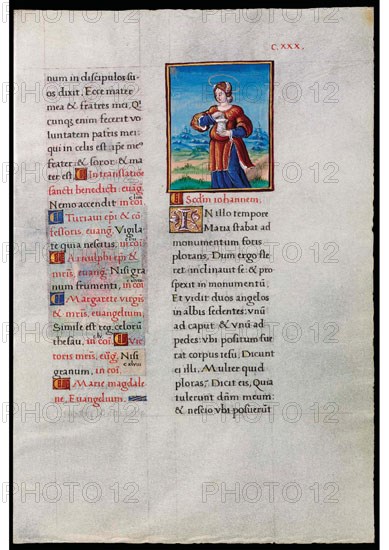 C. XXX.
num in discipulos su
os dixit, Ecce mater
mea & fratres mei. Q
cunq; enim fecerit vo
luntatem patris mei:
qui in celis est ipse me
frater: & soror: & ma
ter est. In translatiõe
sancti benedicti: euãg.
Nemo accendit in coi
Turiani epi & cõ
fessoris, euang. Vigila
te quia nescitis, in coi
Arnulphi epi &
mris, euang. Nisi gra
num frumenti, in coi.
Margarete virgis
& mris, euangelium.
Simile est reg. celorũ
thesau, in coi. Vic
toris mris, eug. Nisi
granum, in coi.
Marie magdale
ne, Euangelium.
Scdm iohannem.
IN illo tempore
Maria stabat ad
monumentum foris
plorans, Dum ergo fle
ret: inclinauit se & pro
spexit in monumentũ:
Et vidit duos angelos
in albis sedentes: vnũ
ad caput & vnũ ad
pedes: vbi positum fue
rat corpus iesu. Dicunt
ei illi, Mulier quid
ploras. Dicit eis, Quia
tulerunt dñm meum:
& nescio vbi posuerũt
PHOTO 12